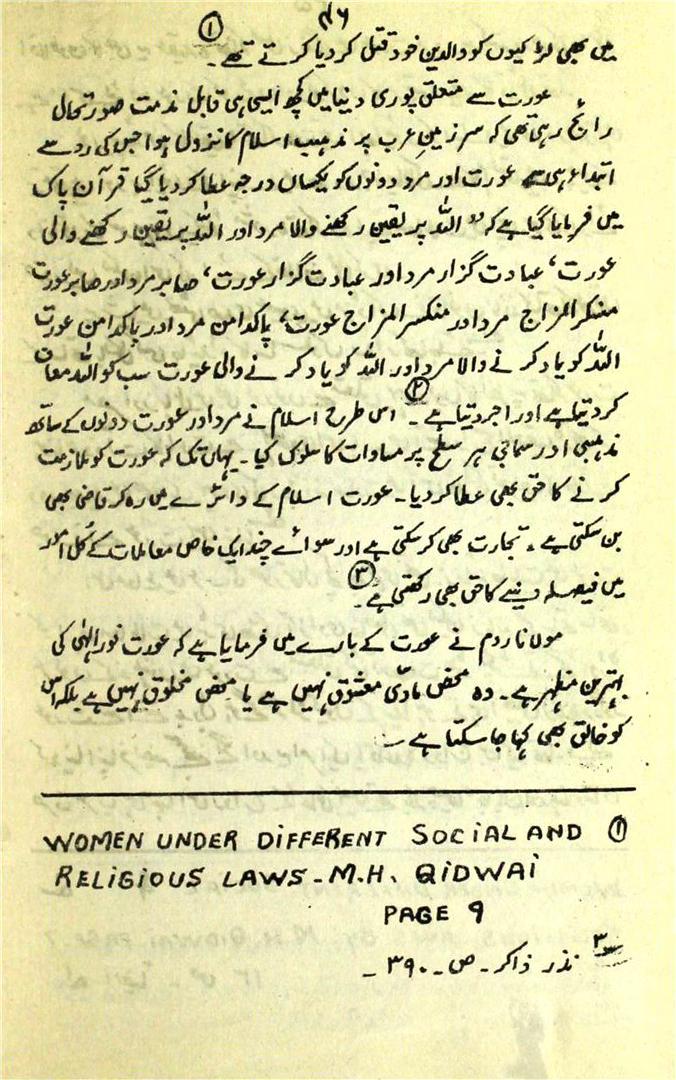 ۴۶
میں بھی لڑکیوں کو والدین خود قتل کر دیا کرتے تھے۔ ①
عورت سے متعلق پوری دنیا میں کچھ ایسی ہی قابل مذمت صورتحال
رائج رہی تھی کہ سرزمینِ عرب پر مذہب اسلام کا نزول ہوا جس کی رو سے
ابتداء ہی سے عورت اور مرد دونوں کو یکساں درجہ عطا کر دیا گیا قرآن پاک
میں فرمایا گیا ہے کہ "اللہ پر یقین رکھنے والا مرد اور اللہ پر یقین رکھنے والی
عورت، عبادت گزار مرد اور عبادت گزار عورت، صابر مرد اور صابر عورت
منکسر المزاج مرد اور منکسر المزاج عورت، پاکدامن مرد اور پاکدامن عورت
اللہ کو یاد کرنے والا مرد اور اللہ کو یاد کرنے والی عورت سب کو اللہ معاف
کر دیتا ہے اور اجر دیتا ہے۔ ② اس طرح اسلام نے مرد اور عورت دونوں کے ساتھ
مذہبی اور سماجی ہر سطح پر مساوات کا سلوک کیا۔ یہاں تک کہ عورت کو ملازمت
کرنے کا حق بھی عطا کر دیا۔ عورت اسلام کے دائرے میں رہ کر قاضی بھی
بن سکتی ہے، تجارت بھی کر سکتی ہے اور سوائے چند ایک خاص معاملات کے کُل امور
میں فیصلہ دینے کا حق بھی رکھتی ہے۔ ③
مولانا روم نے عورت کے بارے میں فرمایا ہے کہ عورت نور الہٰی کی
بہترین مظہر ہے۔ وہ محض مادّی معشوق نہیں ہے یا محض مخلوق نہیں ہے بلکہ اس
کو خالق بھی کہا جا سکتا ہے۔
WOMEN UNDER DIFFERENT SOCIAL AND ①
RELIGIOUS LAWS - M.H. QIDWAI
PAGE 9
۳ نذر ذاکر۔ ص۔ ۳۹۰۔